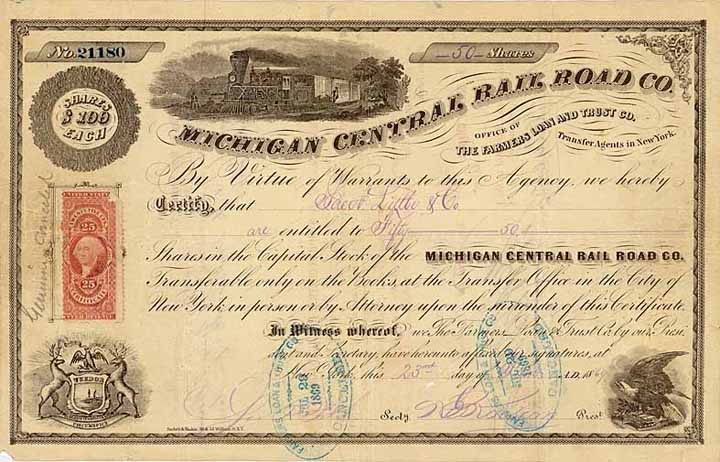 No. 21180
50 Shares
SHARES
$100
EACH
MICHIGAN CENTRAL RAIL ROAD CO.
OFFICE OF
THE FARMERS LOAN AND TRUST CO.
Transfer Agents in New York.
By Virtue of Warrants to this Agency, we hereby
Certify, that Jacob Little & Co
are entitled to Fifty 50
Shares in the Capital Stock of the MICHIGAN CENTRAL RAIL ROAD CO.
Transferable only on the Books, at the Transfer Office in the City of
New York, in person or by Attorney upon the surrender of this Certificate.
In Witness whereof, we The Farmers Loan & Trust Co. by our Presi
dent and Secretary, have hereunto affixed our signatures, at
New York, this 23rd day of A.D. 186
Secty.
Prest.
25
25
CERTIFICATE
TUEBOR
JUL 26
1869